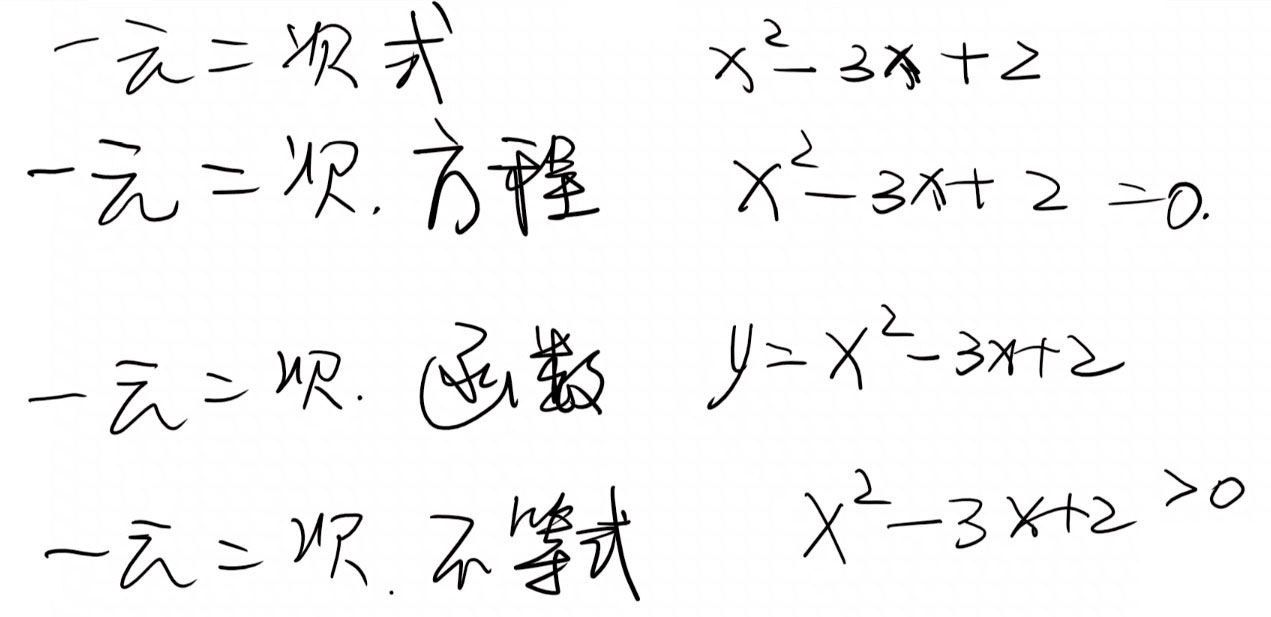 一元二次式 x²-3x+2
一元二次.方程 x²-3x+2=0.
一元二次.函数 y=x²-3x+2
一元二次.不等式 x²-3x+2>0